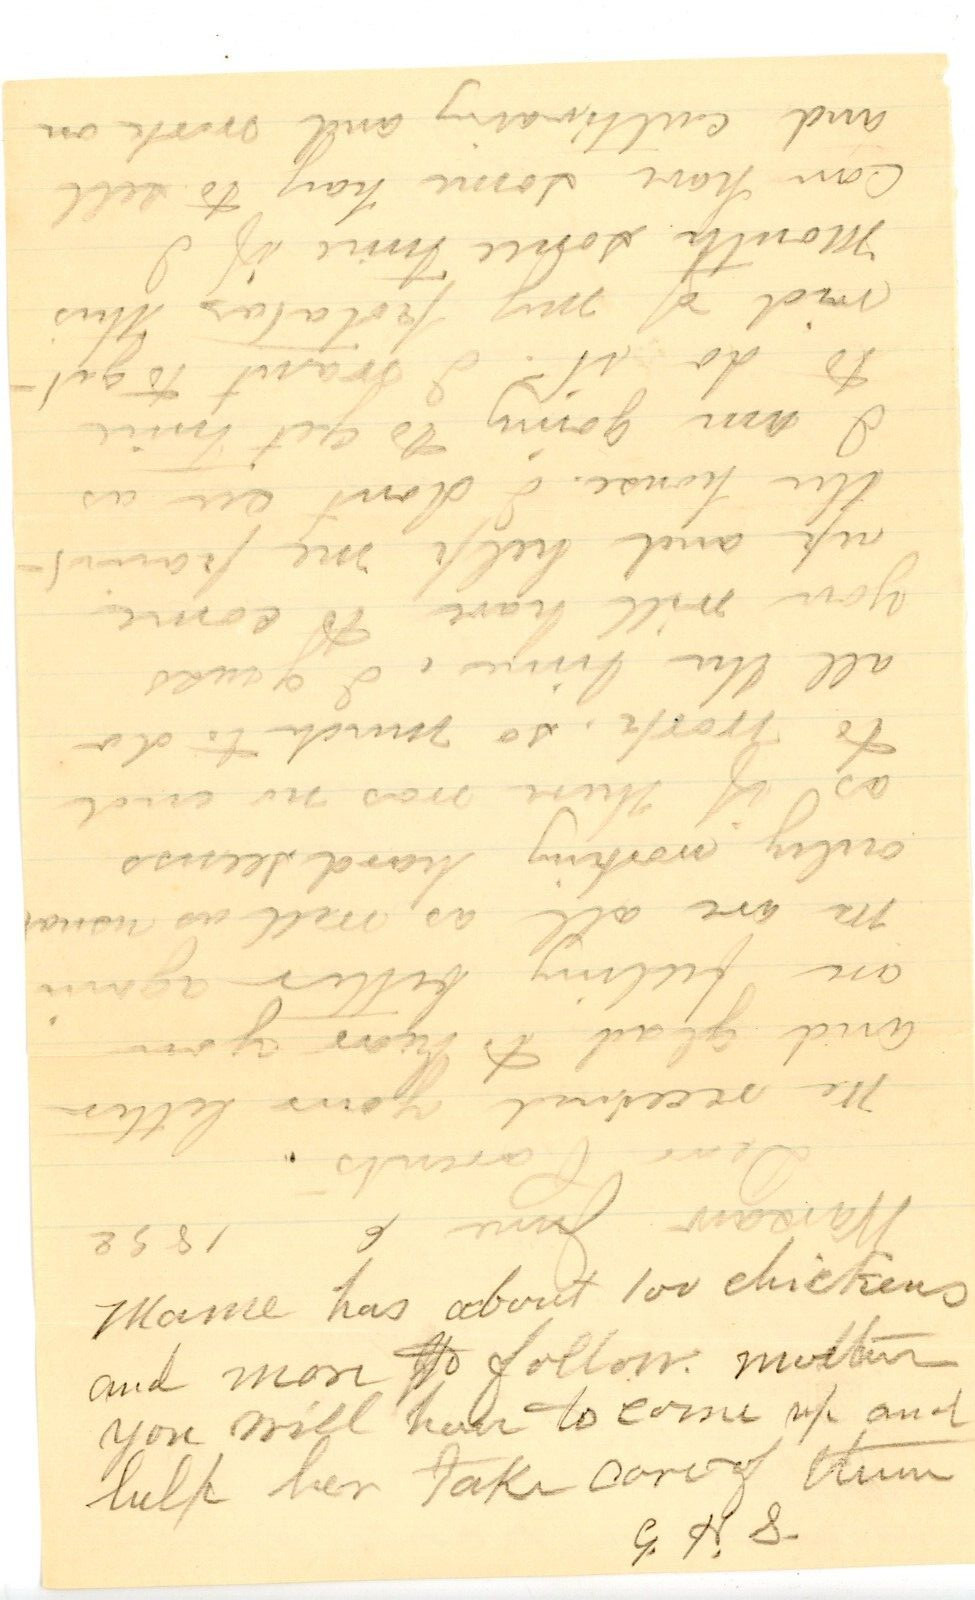 Warsaw June 6 1892
Dear Parents
We received your letter
and glad to hear you
are feeling better again
We are all as well as usual
only working hard seems
as if there was no end
to work. so much to do
all the time. I guess
you will have to come
up and help me paint
the house. I dont see as
I am going to get time
to do it. I want to get
rid of my potatoes this
Month some time if I
can have some hay to sell
and cultivating and work on
Mame has about 100 chickens
and more to follow. mother
you will have to come up and
help her take care of them
G H S